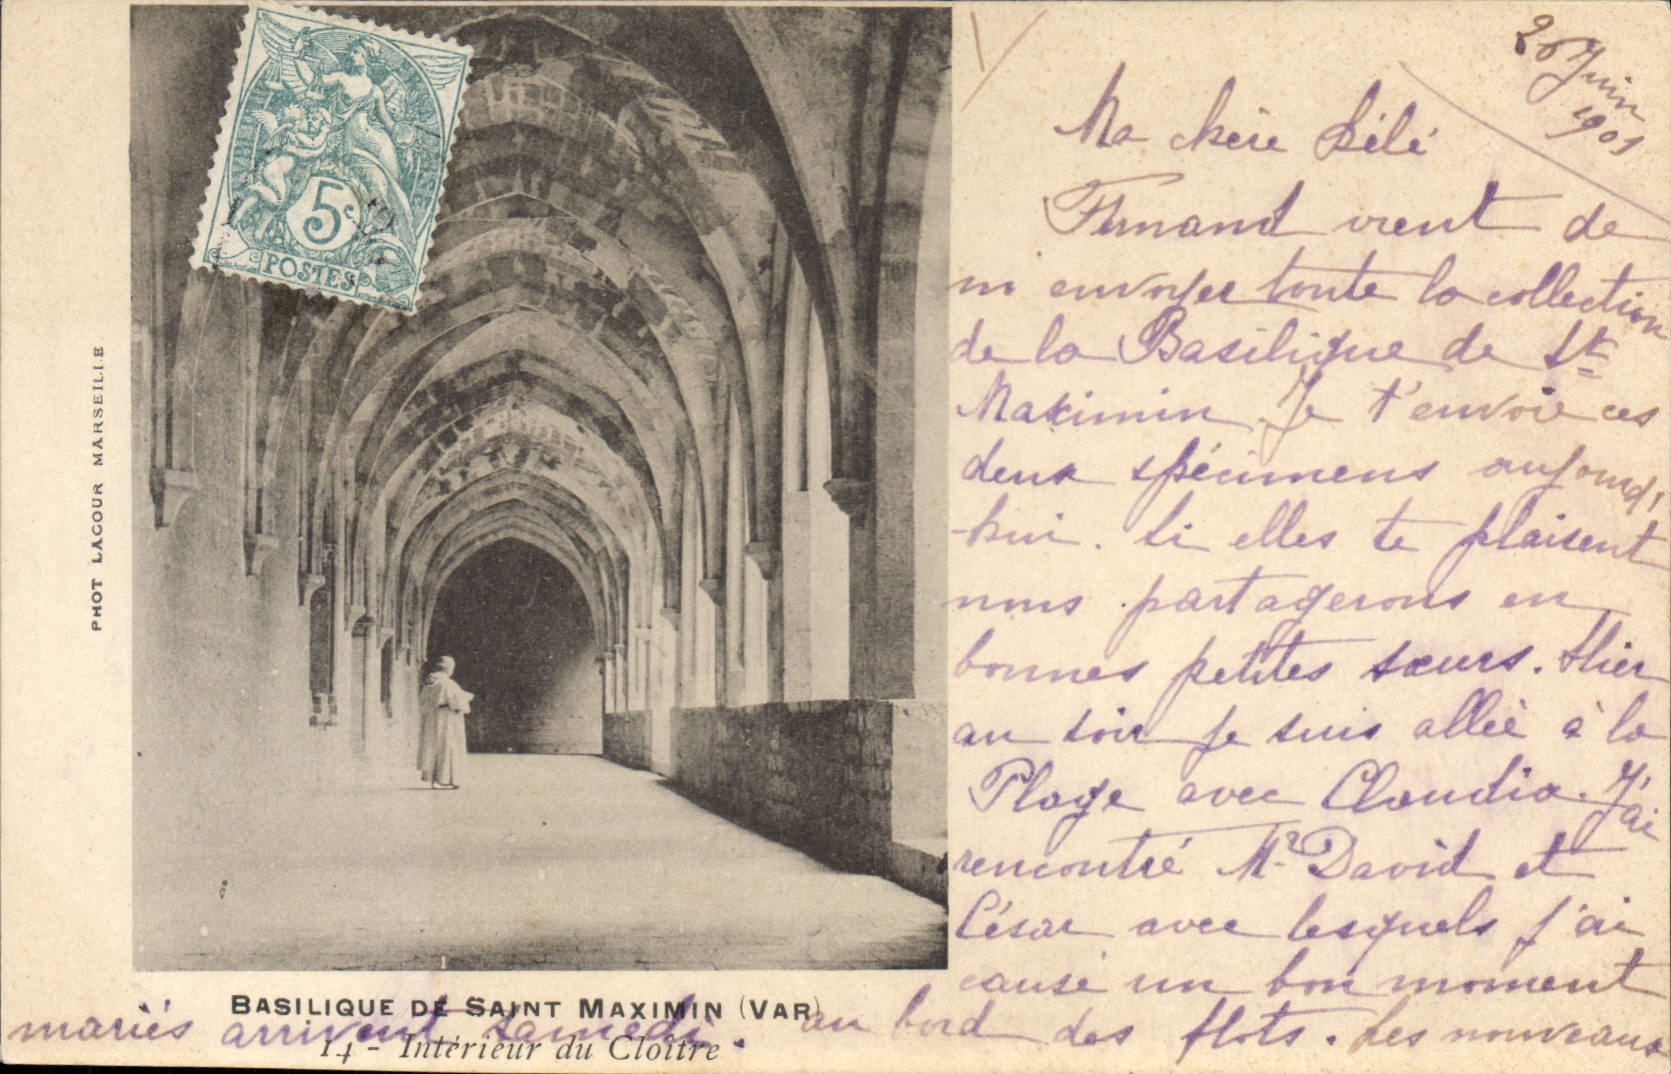 5c
POSTES
PHOT LACOUR MARSEILLE
BASILIQUE DE SAINT MAXIMIN (VAR)
14 - Intérieur du Cloître
Juin
Ma chère Lélé
Fernand vient de
m'envoyer toute la collection
de la Basilique de St
Maximin. Je t'envoie ces
deux spécimens aujourd'
-hui. Si elles te plaisent
nous partagerons en
bonnes petites sœurs. Hier
au soir je suis allée à la
Plage avec Claudia. J'ai
rencontré Mr David et
César avec lesquels j'ai
causé un bon moment
au bord des flots. Les nouveaux
mariés arrivent samedi.